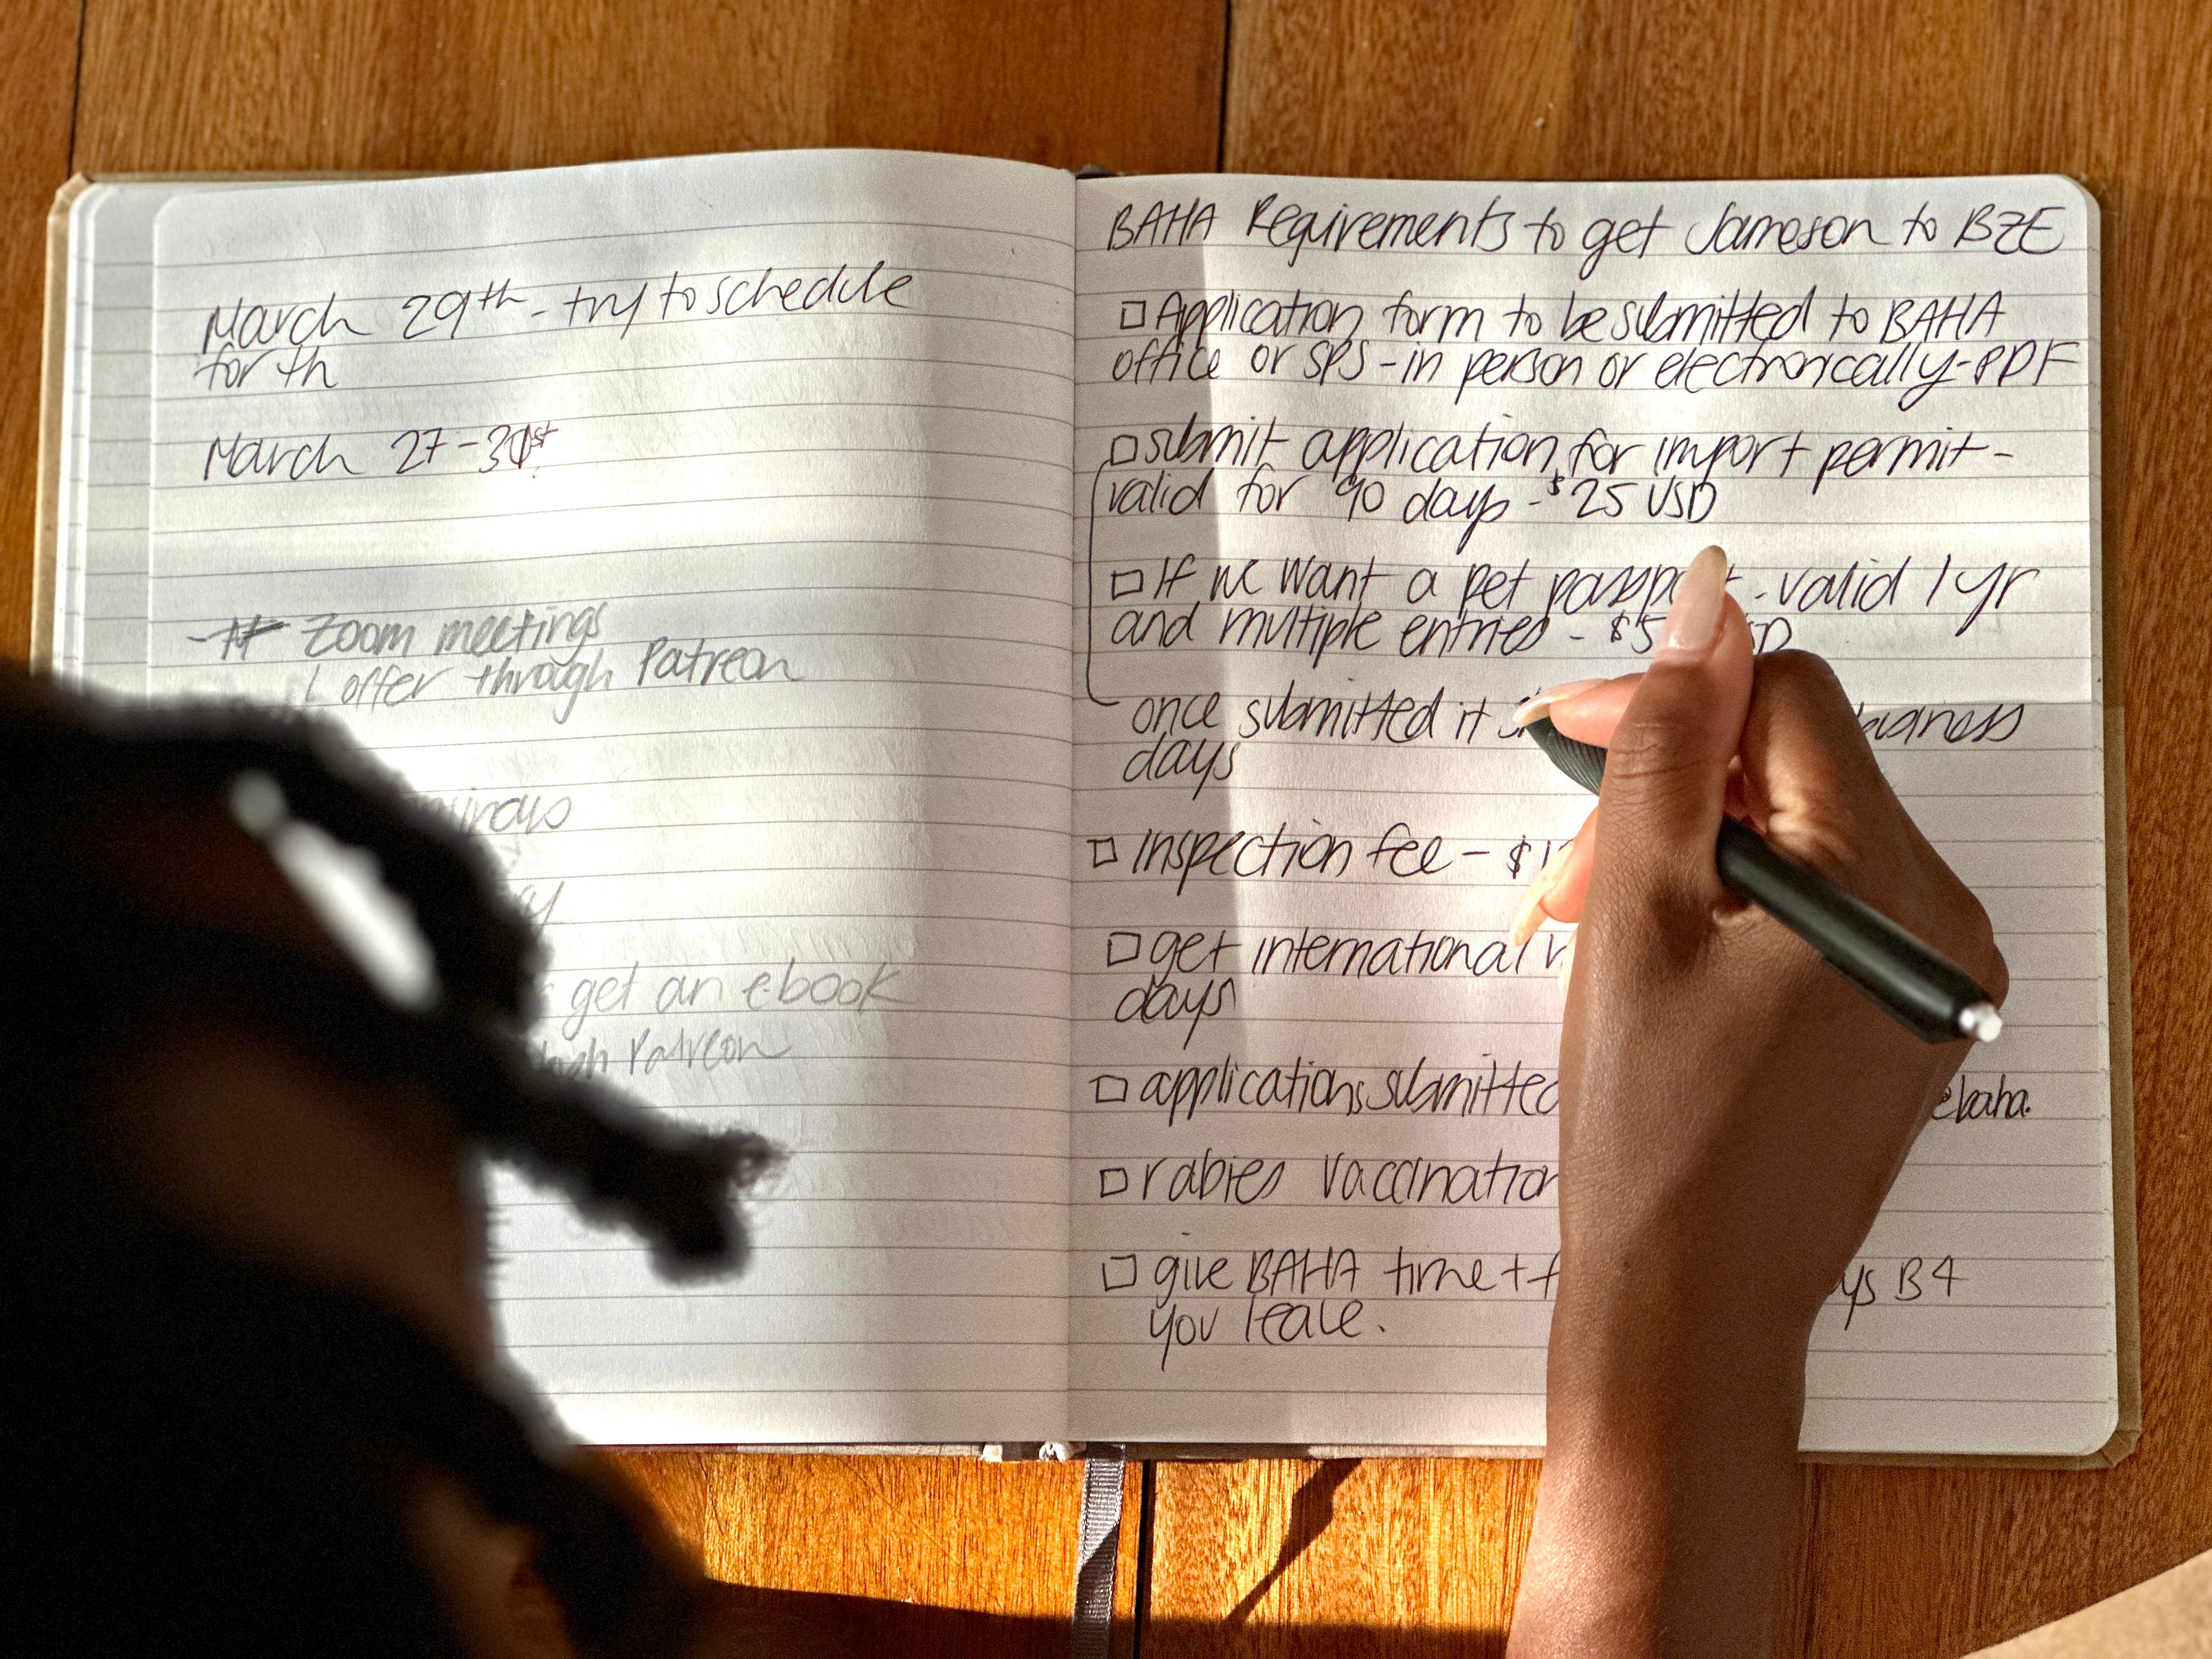 March 29th - try to schedule
for th
March 27 - 31st
Zoom meetings
I offer through Patreon
get an ebook
Patreon
BAHA Requirements to get Jameson to BZE
□ Application form to be submitted to BAHA
office or SPS - in person or electronically - PDF
□ submit application for import permit -
valid for 90 days - $25 USD
□ If we want a pet passport - valid 1 yr
and multiple entries - $5
once submitted it business
days
□ inspection fee - $1
□ get international
days
□ applications submitted ebaha.
□ rabies vaccination
□ give BAHA time + B4
you leave.